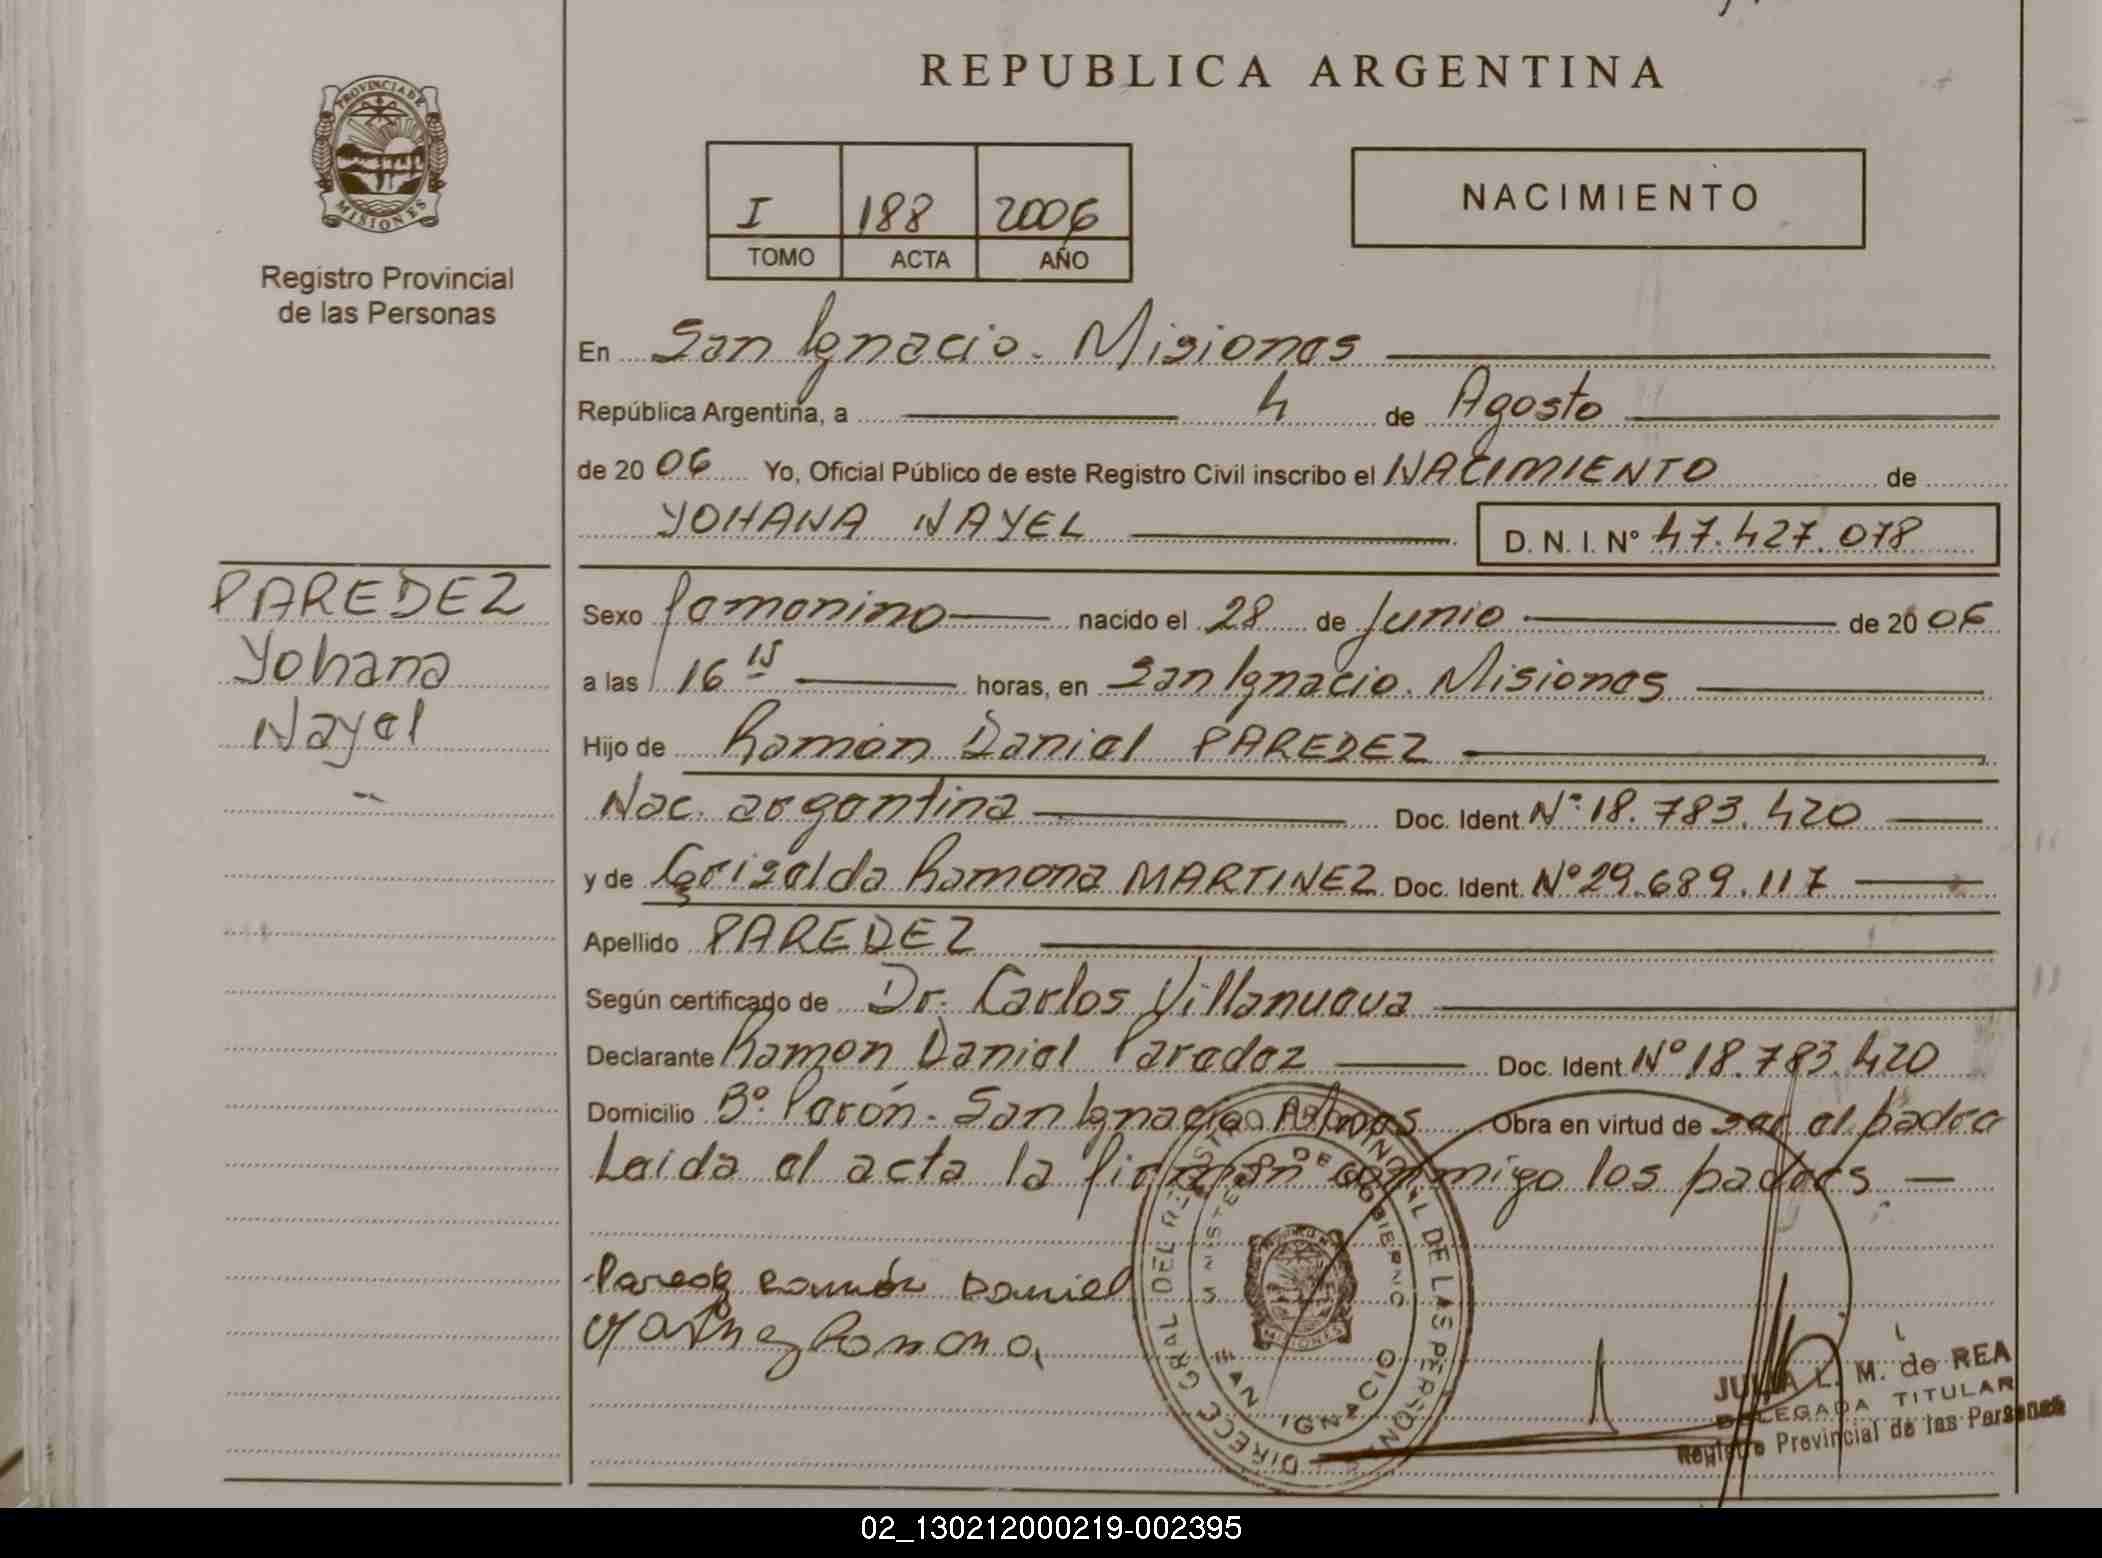 REPUBLICA ARGENTINA
PROVINCIA DE
MISIONES
Registro Provincial
de las Personas
I 188 2006
TOMO ACTA AÑO
NACIMIENTO
En San Ignacio - Misiones
República Argentina, a 4 de Agosto
de 20 06 Yo, Oficial Público de este Registro Civil inscribo el NACIMIENTO de
YOHANA NAYEL D. N. I. Nº 47.427.078
PAREDEZ
Yohana
Nayel
Sexo femenino nacido el 28 de Junio de 20 06
a las 16 15 horas, en San Ignacio. Misiones
Hijo de Ramón Daniel PAREDEZ
Nac. argentina Doc. Ident. Nº 18.783.420
y de Griselda Ramona MARTINEZ Doc. Ident. Nº 29.689.117
Apellido PAREDEZ
Según certificado de Dr. Carlos Villanueva
Declarante Ramon Daniel Paredez Doc. Ident. Nº 18.783.420
Domicilio Bº. Perón - San Ignacio Mnes Obra en virtud de ser el padre
Leida el acta la firman conmigo los padres. —
Paredez Ramón Daniel
Martinez Ramona
DIRECC. GRAL DEL REGISTRO PROVINCIAL DE LAS PERSONAS
MINISTERIO DE GOBIERNO
MISIONES
SAN IGNACIO
JULIA L. M. de REA
DELEGADA TITULAR
Registro Provincial de las Personas
02_130212000219-002395